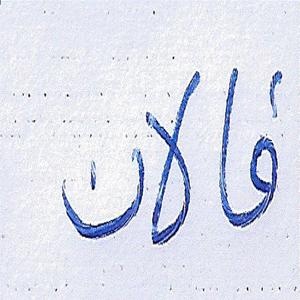 فالان